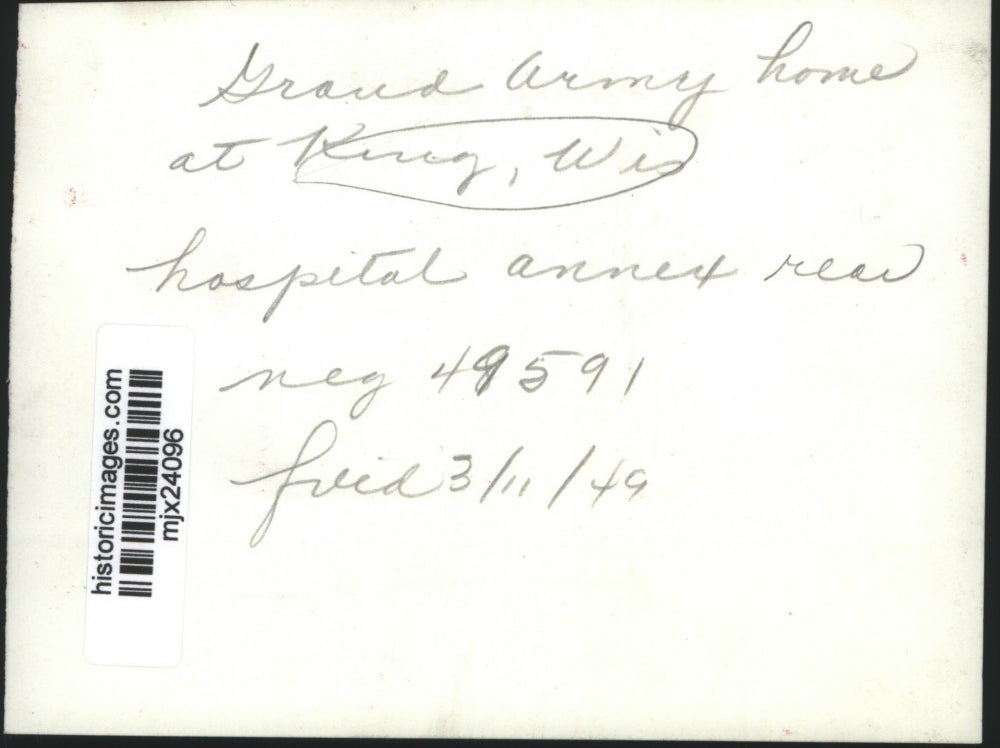 Grand Army home
at King, Wis
hospital annex rear
neg 49591
3/11/49
historicimages.com
mjx24096